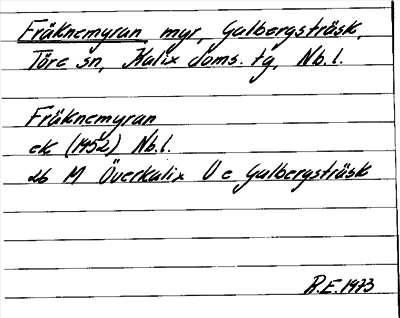 Fräknemyran myr, Gulbergsträsk,
Töre sn, Kalix doms. tg, Nb.l.
Fräknemyran
ek (1952) Nb.l.
26 M Överkalix U e Gulbergsträsk
R.E. 1973